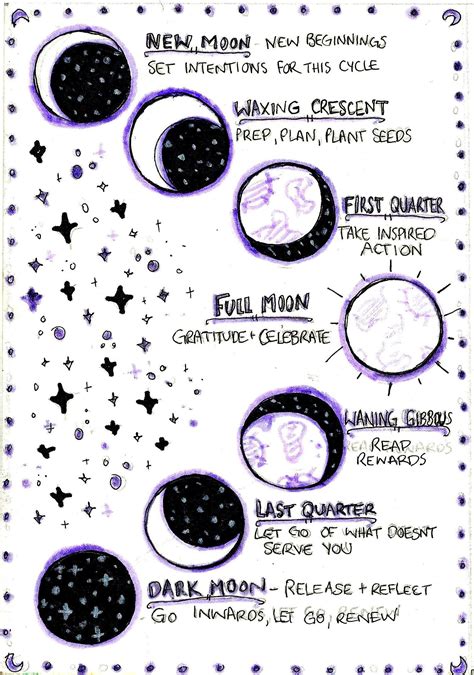 NEW MOON - NEW BEGINNINGS
SET INTENTIONS FOR THIS CYCLE
WAXING CRESCENT
PREP, PLAN, PLANT SEEDS
FIRST QUARTER
TAKE INSPIRED
ACTION
FULL MOON
GRATITUDE + CELEBRATE
WANING GIBBOUS
READ
REWARDS
LAST QUARTER
LET GO OF WHAT DOESN'T
SERVE YOU
DARK MOON - RELEASE + REFLECT
GO INWARDS, LET GO, RENEW